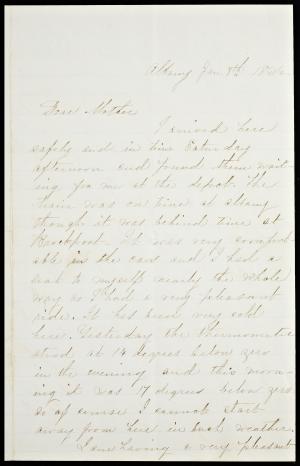 Albany Jan 8th
Dear Mother
I arrived here
safely and in time Saturday
afternoon and found them wait-
ing for me at the depot. The
train was on time at Albany
though it was behind time at
Brockport. It was very comfort-
able in the cars and I had a
seat to myself nearly the whole
way so I had a very pleasant
ride. It has been very cold
here. Yesterday the thermometer
stood at 14 degrees below zero
in the evening and this morn-
ing it was 17 degrees below zero
so of course I cannot start
away from here in such weather.
I am having a very pleasant